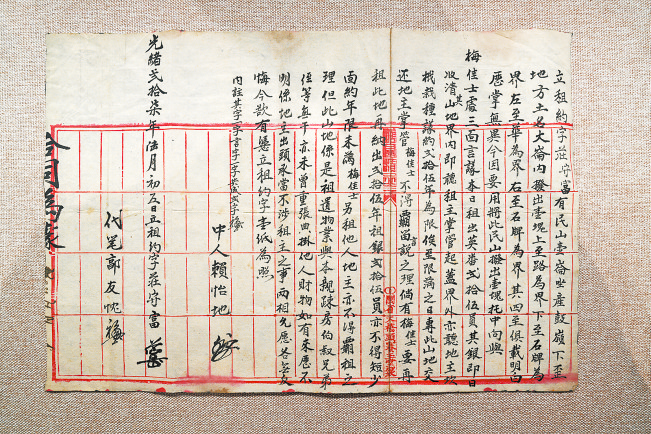 立租約字莊荷富有民山壹崙坐產鼓嶺下歪
地方土名大崙內撥出壹塊上至路為界下至石牌為
界左至華為界右至石牌為界其四至俱載明白
歷掌無異今因要用將此民山撥出壹塊托中向與
梅佳士處三面言議本日租出英番弍拾伍員其銀即日
收清其山地界內即聽租主掌管起蓋界外亦聽地主
栽種議約弍拾伍年為限俟至限滿之日專此山地交
还地主掌管梅佳士不得霸言說之理倘有梅佳士要再
租此地再納出弍拾伍年租銀弍拾伍員亦不得短少
面約年限未滿梅佳士另租他人地主亦不得霸租之
理但此山地係是祖遺物業與本親踈房伯叔兄弟
侄等無干亦未曾重張典掛他人財物如有來歷不
明係地主出頭承當不涉租主之事兩相允愿各無反
悔今欲有憑立租約字壹紙為照
內註其字一字言字一字
光緒弍拾柒年 月初 日立租約字莊荷富
中人賴怡地
代筆郭友忱